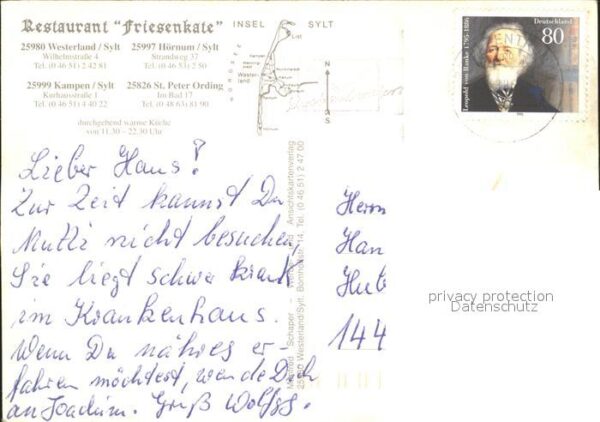 Restaurant "Friesenkate"
25980 Westerland / Sylt
Wilhelmstraße 4
Tel. (0 46 51) 2 42 81
25997 Hörnum / Sylt
Strandweg 37
Tel. (0 46 53) 2 50
25999 Kampen / Sylt
Kurhausstraße 1
Tel. (0 46 51) 4 40 22
25826 St. Peter Ording
Im Bad 17
Tel. (0 48 63) 81 90
durchgehend warme Küche
von 11.30 – 22.30 Uhr
INSEL SYLT
NORDSEE
List
Wester-
land
N
S
Deutschland
80
Leopold von Ranke 1795-1886
Lieber Hans!
Zur Zeit kannst Du
Mutti nicht besuchen,
Sie liegt schwer krank
im Krankenhaus.
Wenn Du näheres er
fahren möchtest, wende Dich
an Joachim. Gruß Wolfgg.
Manfred Schaper - und Ansichtskartenverlag
25980 Westerland/Sylt, 14, Tel. (0 46 51) 2 47 00
Herrn
Han
Hub
144
privacy protection
Datenschutz